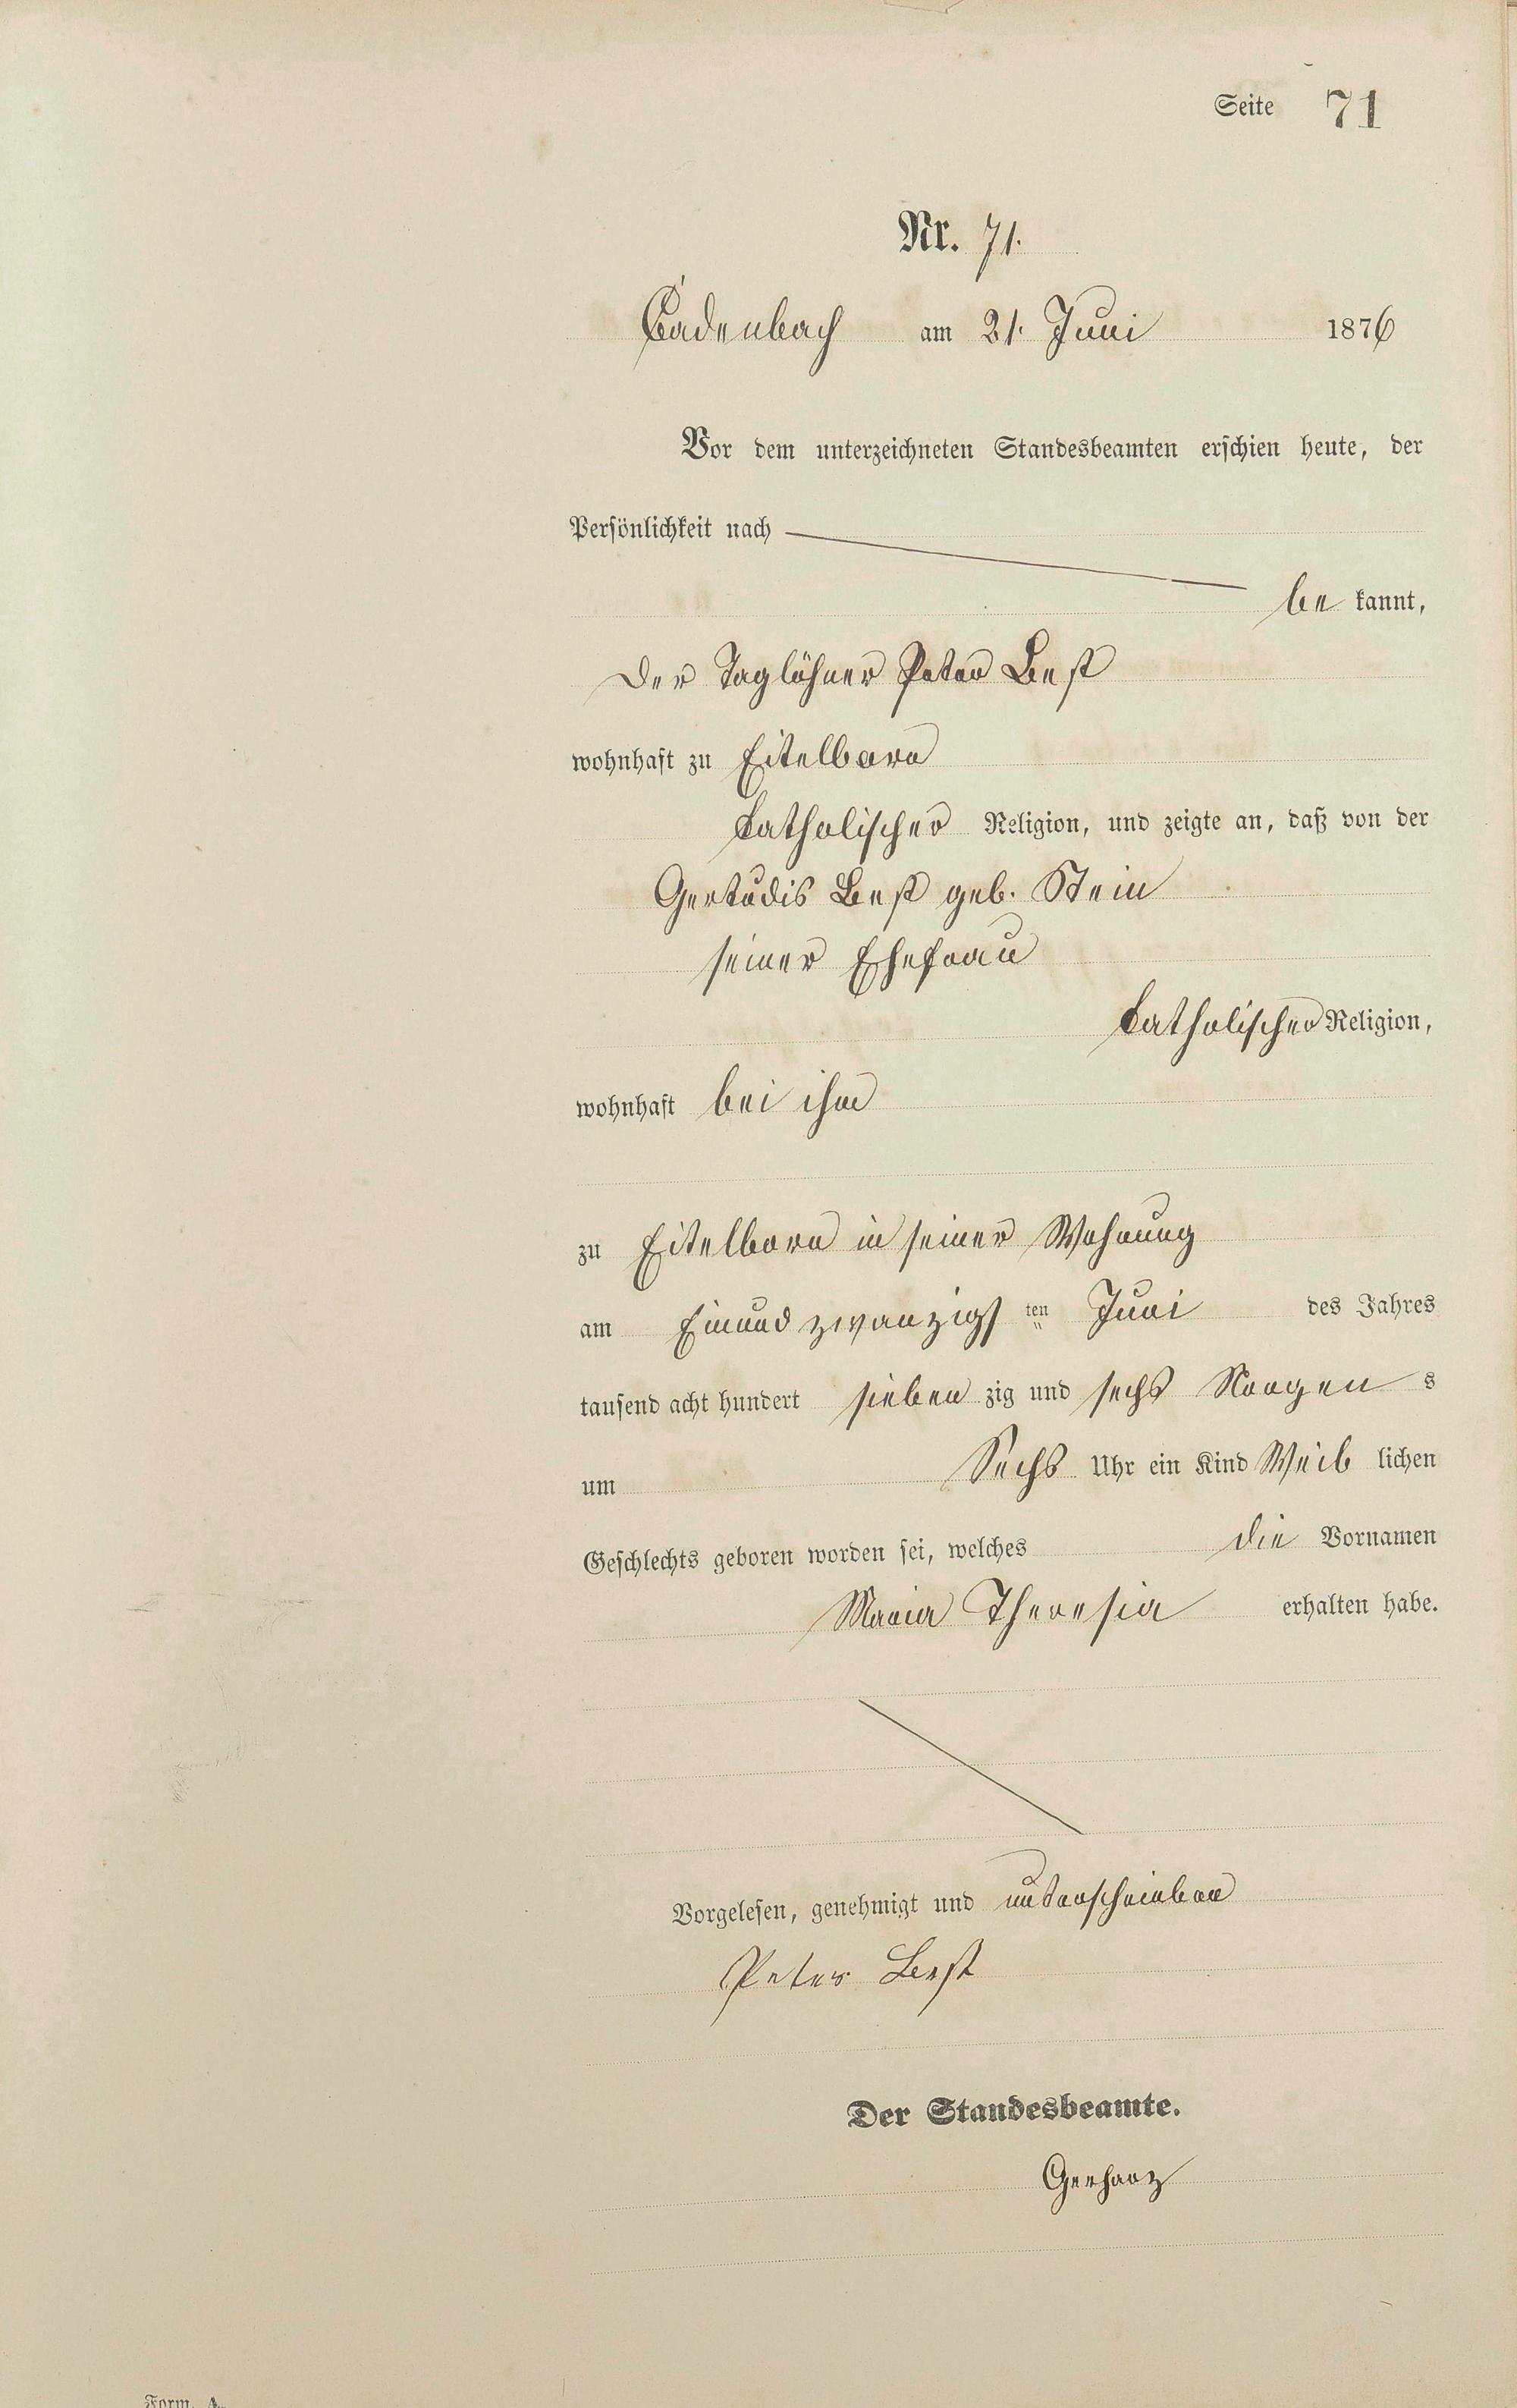 Seite 71
Nr. 71.
Cadenbach am 21. Juni 1876
Vor dem unterzeichneten Standesbeamten erschien heute, der
Persönlichkeit nach
be kannt,
der Taglöhner Peter Best
wohnhaft zu Eitelborn
katholischer Religion, und zeigte an, daß von der
Gertudis Best geb. Stein
seiner Ehefrau
katholischer Religion,
wohnhaft bei ihm
zu Eitelborn in seiner Wohnung
am Einund zwanzigs ten Juni des Jahres
tausend acht hundert sieben zig und sechs Morgen s
um Sechs Uhr ein Kind Weib lichen
Geschlechts geboren worden sei, welches die Vornamen
Maria Theresia erhalten habe.
Vorgelesen, genehmigt und unterschrieben
Peter Best
Der Standesbeamte.
Gerharz
Form. A.